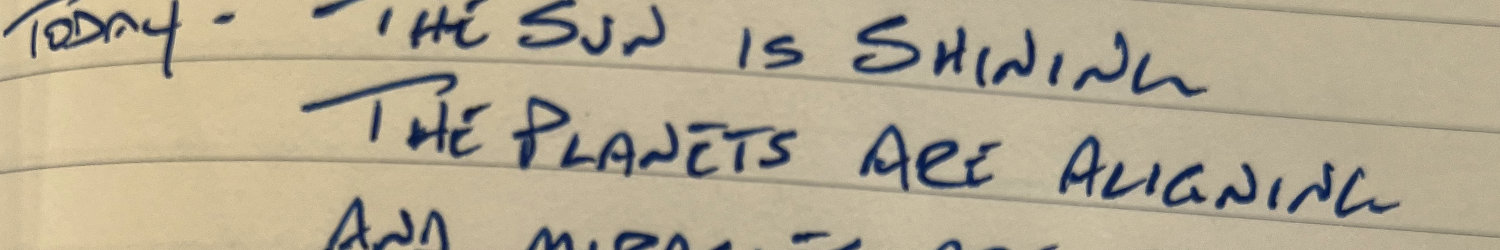 TODAY - THE SUN IS SHINING
THE PLANETS ARE ALIGNING
AND